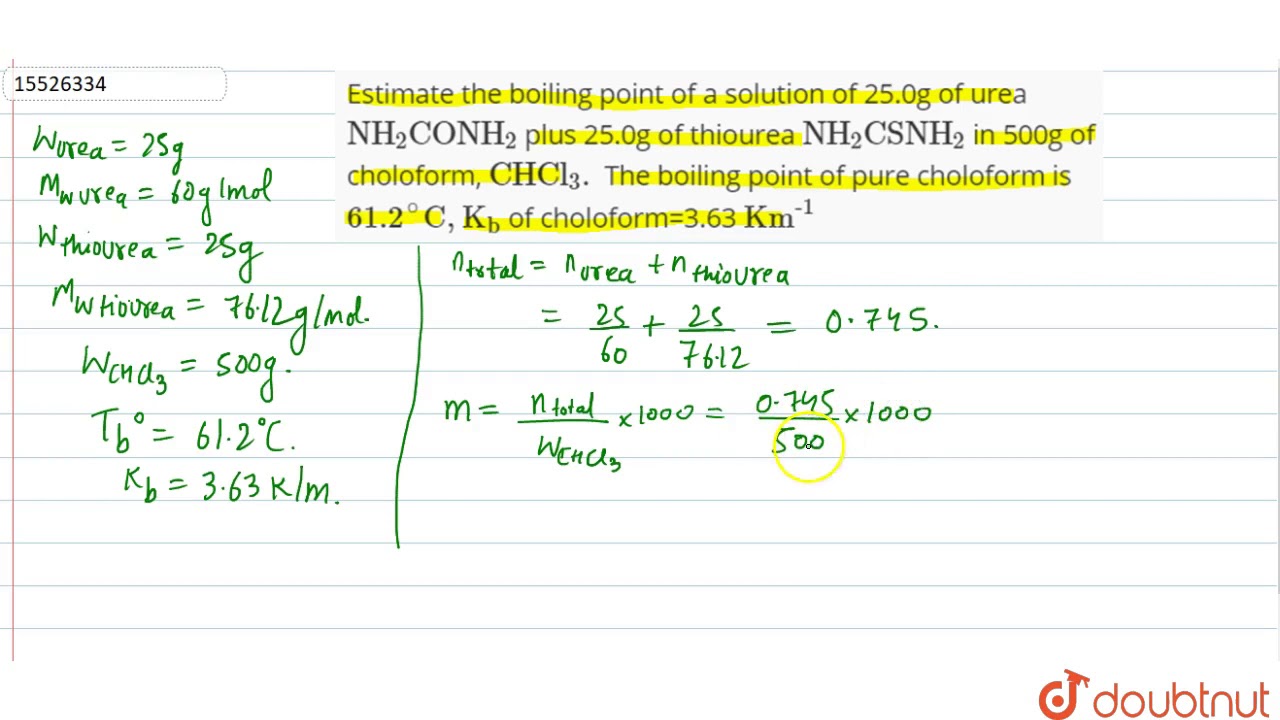 15526334
Estimate the boiling point of a solution of 25.0g of urea
NH₂CONH₂ plus 25.0g of thiourea NH₂CSNH₂ in 500g of
choloform, CHCl₃. The boiling point of pure choloform is
61.2°C, K_b of choloform=3.63 Km⁻¹
W_urea = 25g
Mw urea = 60g/mol
W_thiourea = 25g
Mw tiourea = 76.12g/mol.
W_CHCl₃ = 500g.
T_b° = 61.2°C.
K_b = 3.63 K/m.
n_total = n_urea + n_thiourea
= 25/60 + 25/76.12 = 0.745.
m = n_total/W_CHCl₃ × 1000 = 0.745/500 × 1000
doubtnut